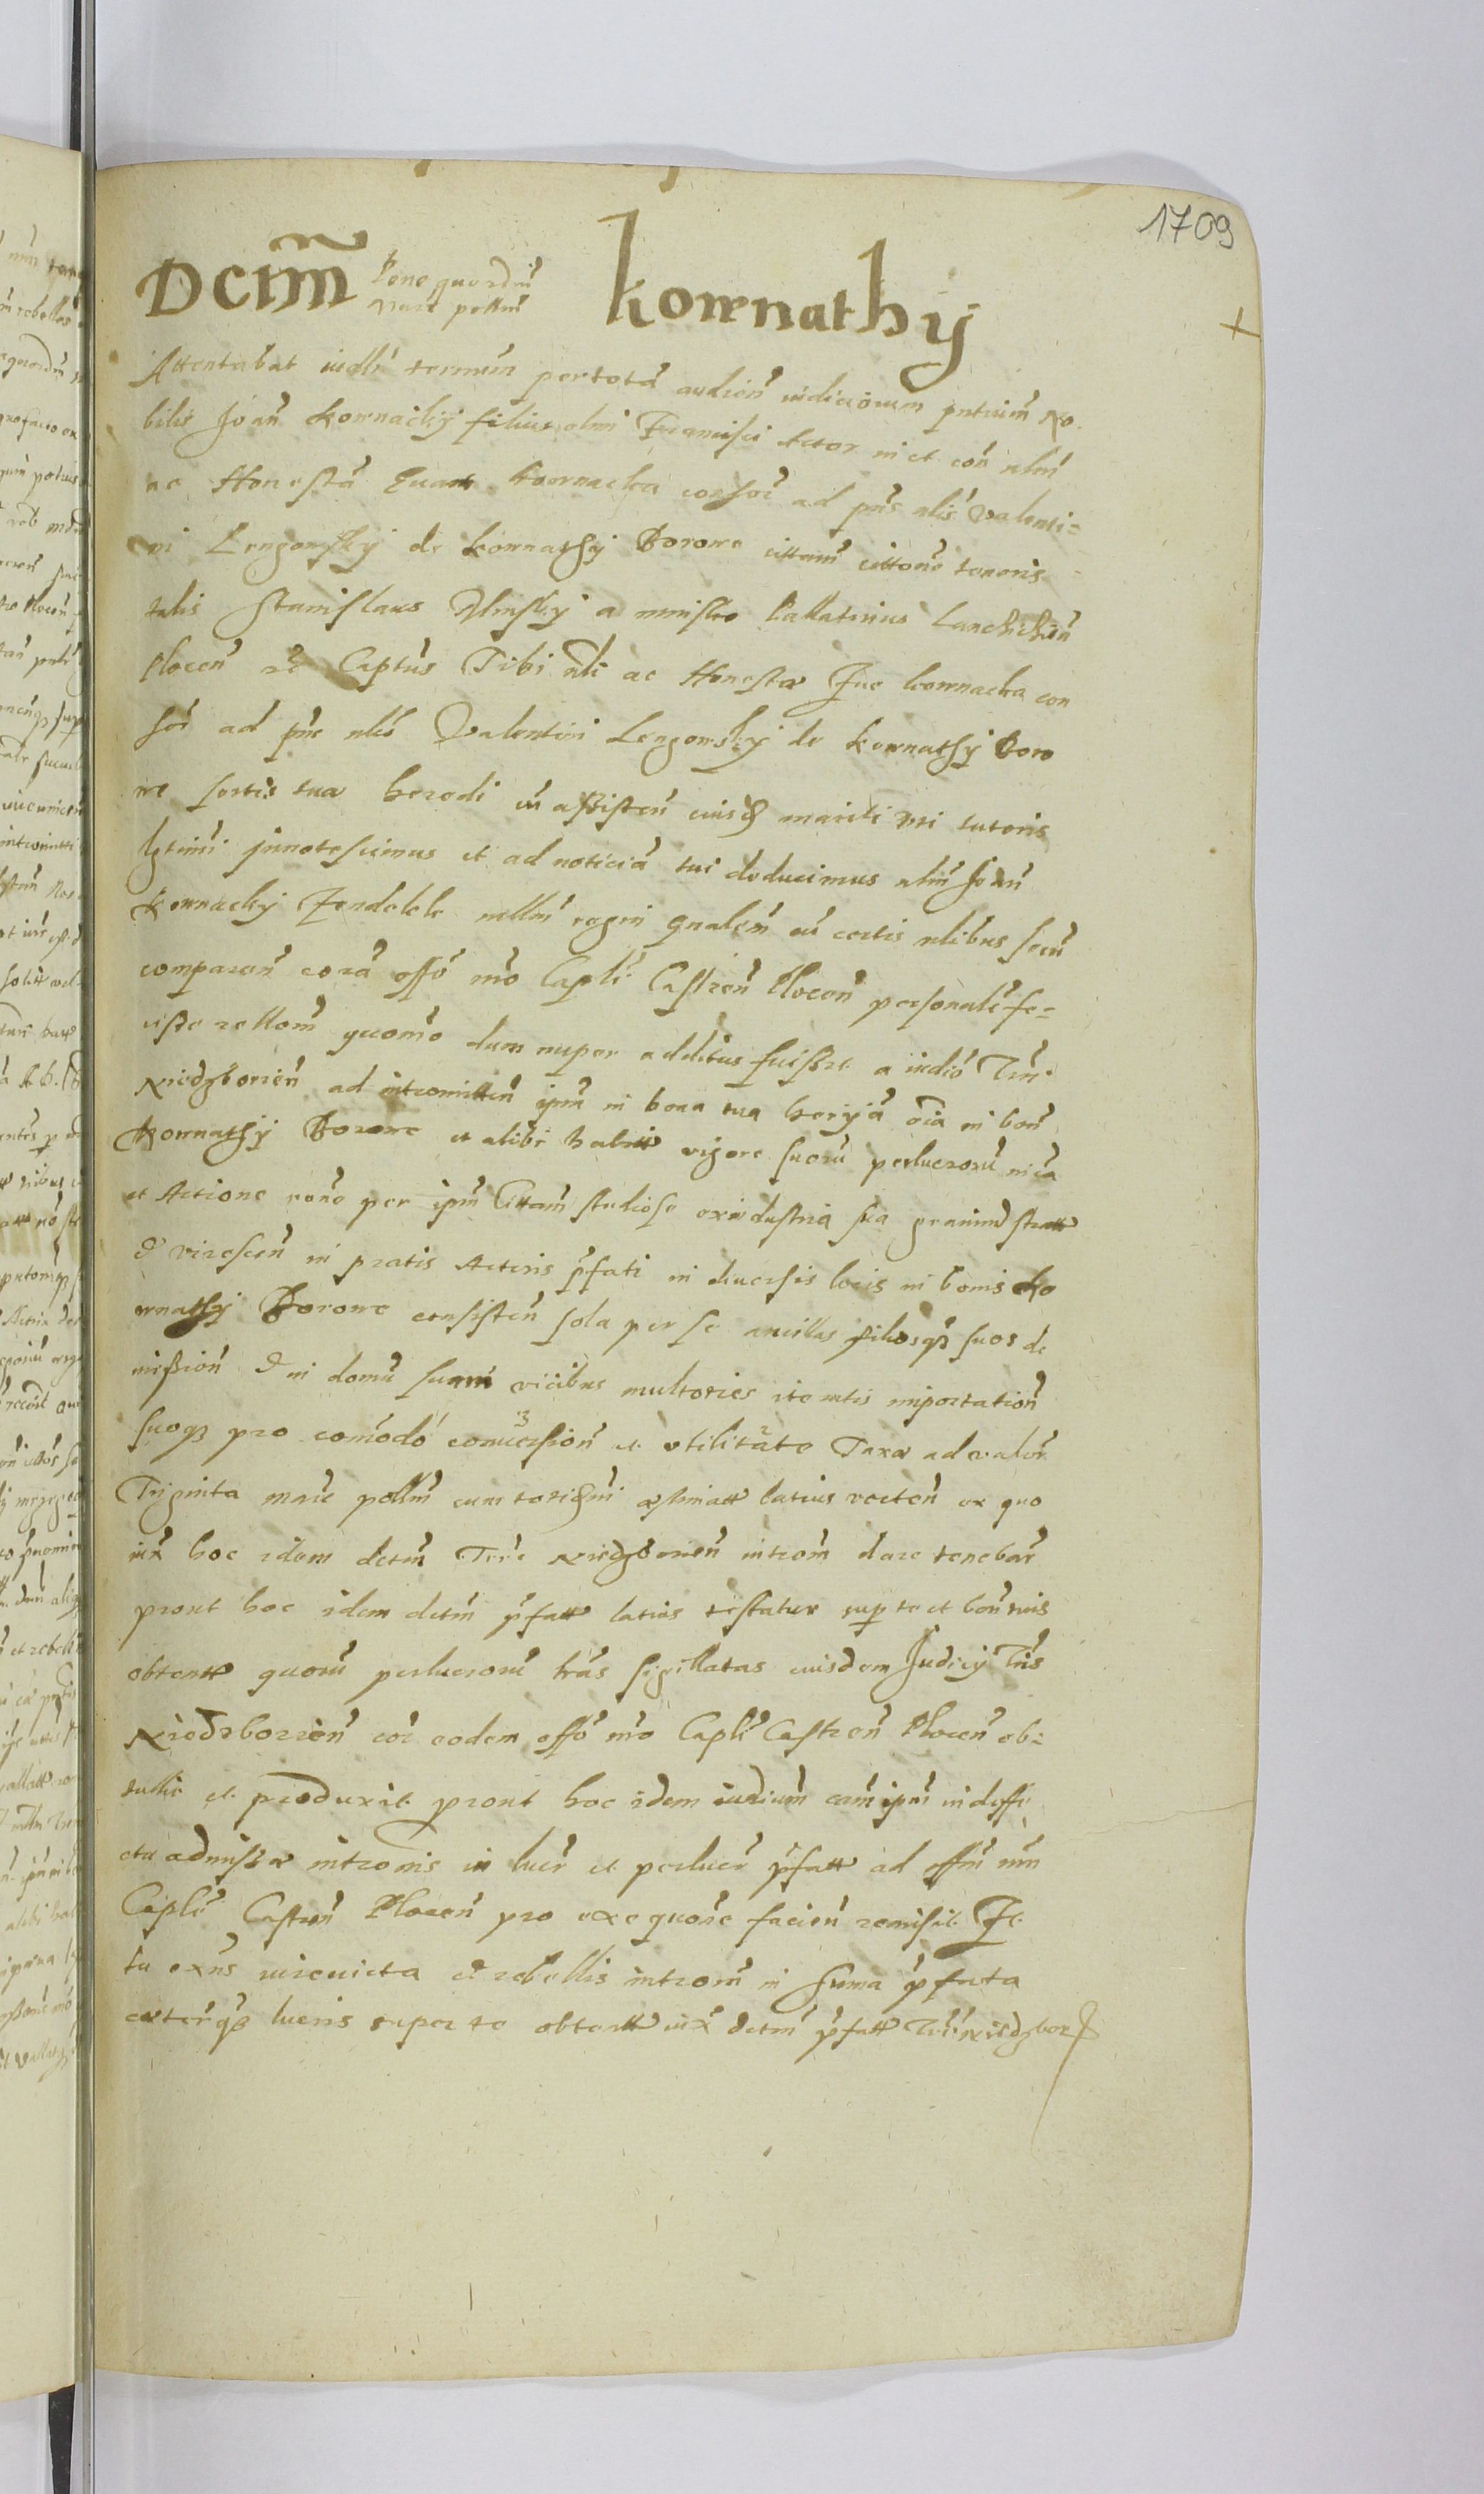 1709
Dcrm̃ Pene quordm̃ Kownathÿ
Marc pollm̃
Attentabat iudlr termm̃ per totã audien̄ iudiciorum pntium No-
bilis Joan̄ Kownackÿ filius olim Francisci Actor in et con̄ nlm̄
ac Honestã Euam Kownacka consor ad pns nlis Valenti=
ni Lengowskÿ de Kownathÿ Borowe cittam̄ cittone tenoris
talis Stanislaus Minskÿ a Palatinus Lanchicien̄
Plocen̄ Captus Tibi nli ac Honestæ Eue Kownacka con
sor ad pns nlis Valentini Lengowskÿ de Kownathÿ Boro
we sortis tuæ heredi cū assisten̄ eiusdē mariti uti tutoris
lgtimi innotescimus et ad noticiã tui deducimus nlm̄ Joan̄
Kownackÿ Fendelele mllm̄ regni gnalem̄ cū certis nlibus secū
comparen̄ corã offo nro Capli Castren̄ Plocen̄ personalr fe=
cisse rellom̄ quomo dum nuper additus fuisset a iudio Trr
Niedzborien̄ ad intromitten̄ ipm̄ in bona tua heryã oia in bon̄
Kownathÿ Borowe et alibi habitt vigore suorū perlucrorū in cã
et Actione rone per ipm̄ Cittam̄ studiose ex industria sua
& virescen̄ in pratis Actoris pfati in diuersis locis in bonis Ko
wnathÿ Borowe consisten̄ sola per se ancillas filiosqz suos de
mission̄ & in domū suam vicibus multoties iteratis importation̄
suoqz pro comodo conuersion̄ et vtilitate Taxa ad valor
Triginta marc pollm̄ cum totidem æstimatt latius rocten̄ ex quo
iux hoc idem detm̄ Terre Niedzborien̄ introm̄ dare tenebar
prout hoc idem detm̄ pfatt latius testatur sup te et bon̄ tuis
obtentt quorū perlucrorū lras sigillatas eiusdem Judicÿ Tris
Niedzborien̄ cor eodem offo nro Capli Castren̄ Plocen̄ ob=
tullit et produxit prout hoc idem iudium cam̄ ipm̄ in deffe
ctu admissæ intromis in lucr et perlucr pfatt ad offm̄ nrm̄
Capli Castren̄ Plocen̄ pro exequone facien̄ remisit Et
tu exns iureuicta et rebellis introm̄ in suma pfata
cæterqz lucris super te obtentt iux detm̄ pfatt Trr Niedzbor